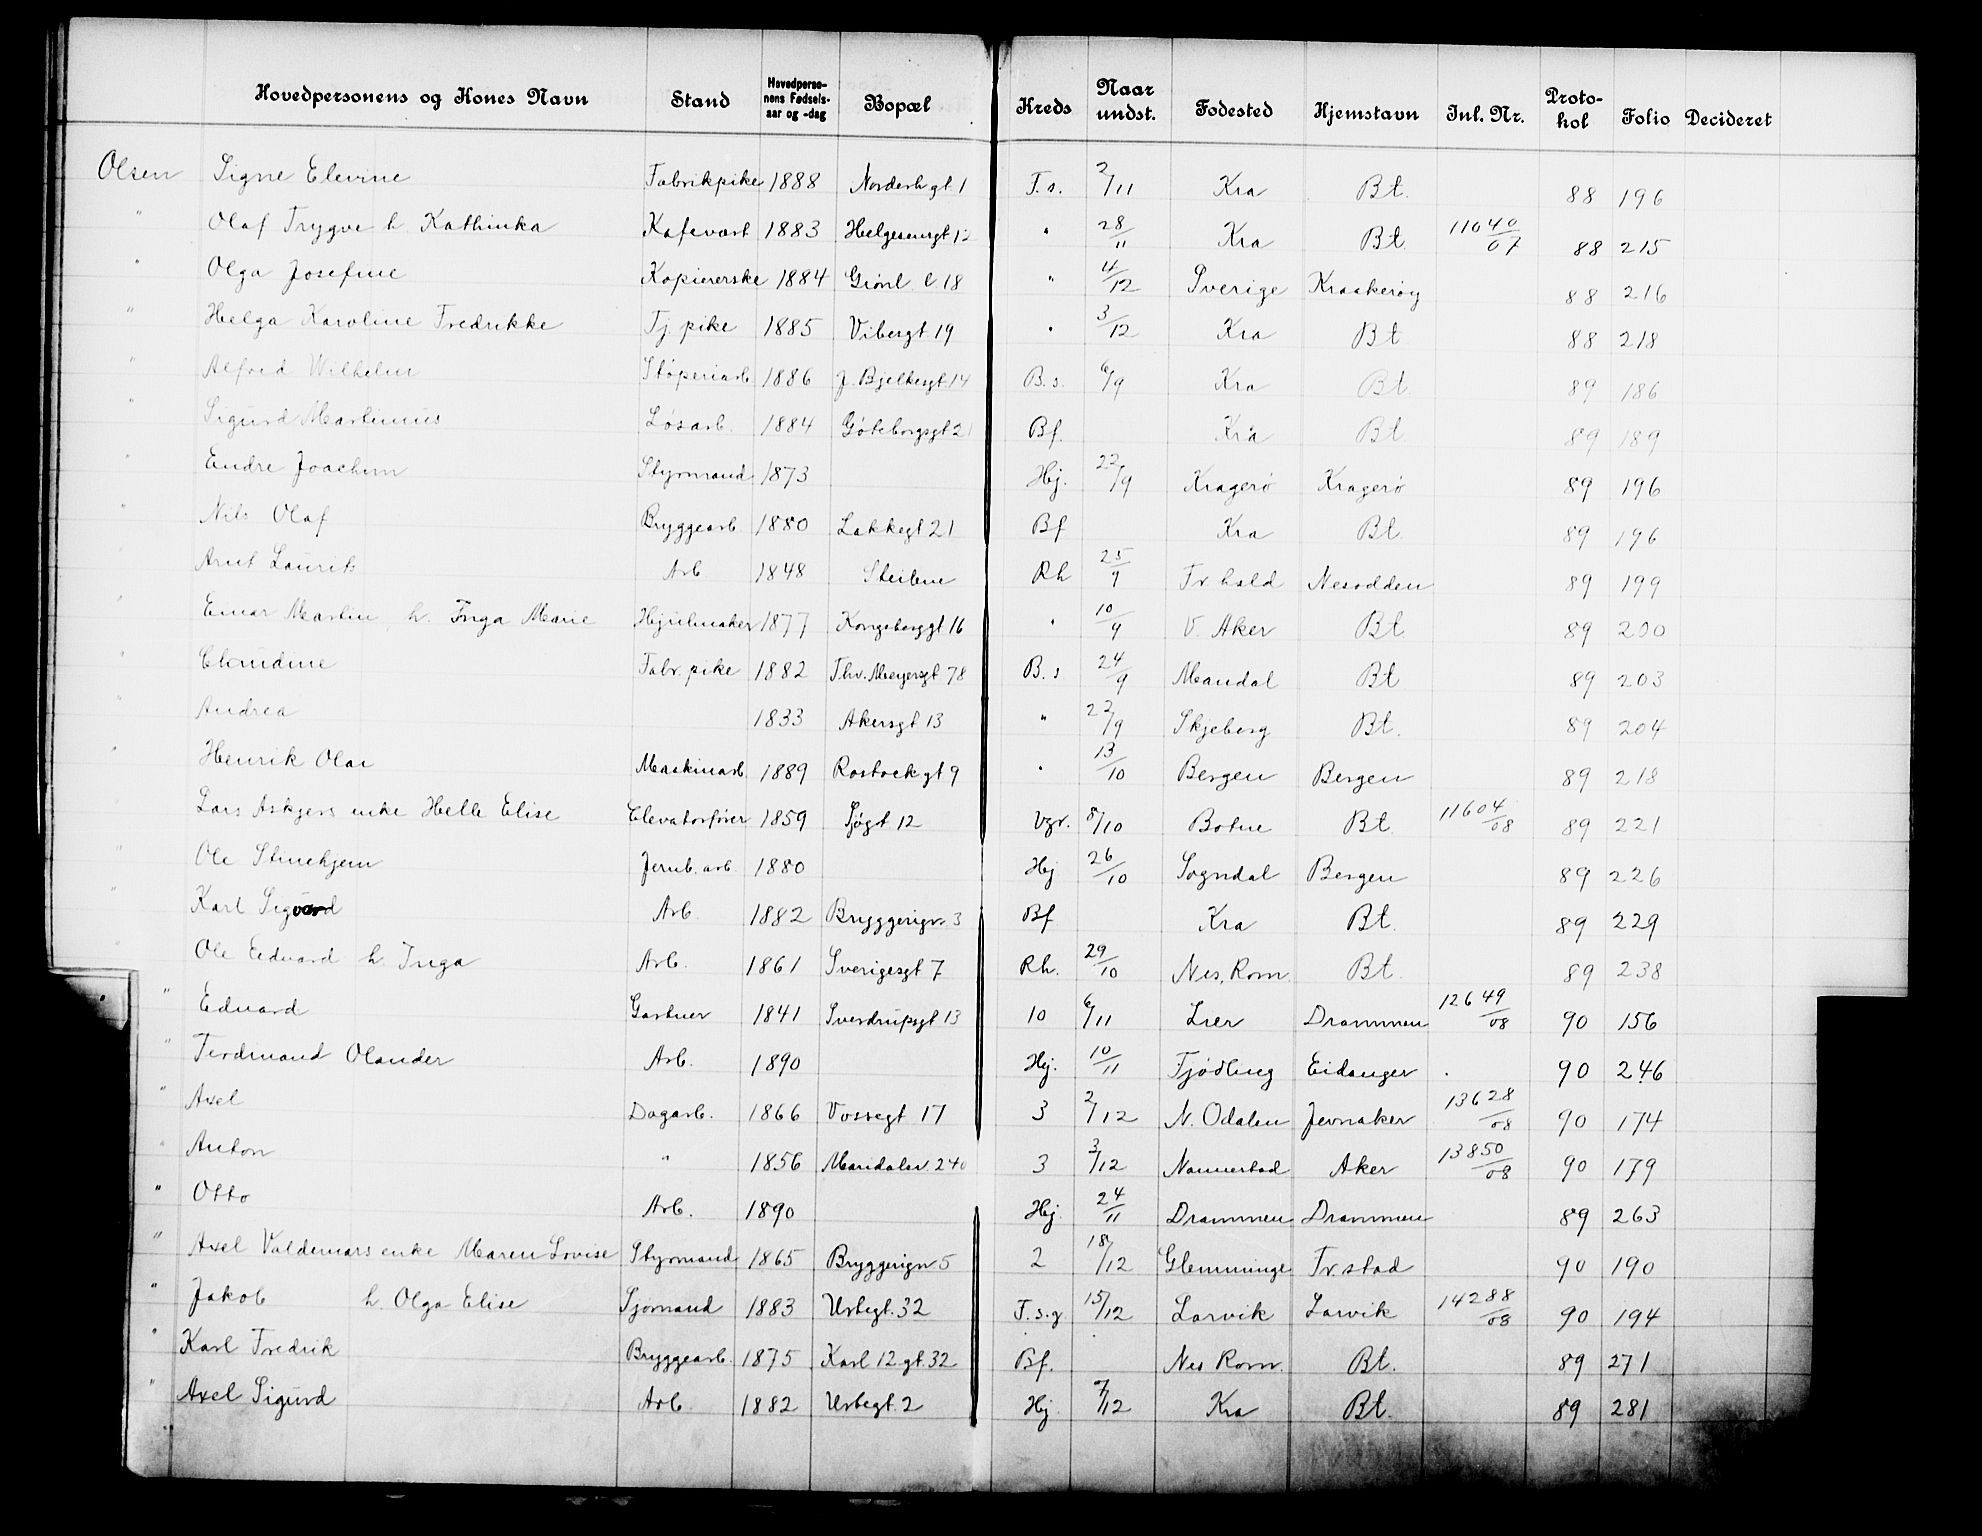 Hovedpersonens og Kones Navn Stand Hovedpersonens Fødselsaar og -dag Bopæl Kreds Naar undst. Fødested Hjemstavn Inl. Nr. Protokol Folio Decideret
Olsen Signe Elevine Fabrikpike 1888 Norderh gt 1 F.s. 2/11 Kra Bt. 88 196
" Olaf Trygve h. Kathinka Kafevært 1883 Helgesensgt 12 " 28/11 Kra Bt. 11040/07 88 215
" Olga Josefine Kopiererske 1884 Grønl. l 18 " 4/12 Sverige Kraakerøy 88 216
" Helga Karoline Fredrikke Tj. pike 1885 Vibesgt 19 " 3/12 Kra Bt 88 218
" Alfred Wilhelm Støperiarb 1886 J. Bjelkesgt. 14 B.s. 6/9 Kra Bt. 89 186
" Sigurd Martinius Løsarb. 1884 Gøteborgsgt 21 Bf. Kra Bt 89 189
" Endre Joachim Styrmand 1873 Hj. 22/9 Kragerø Kragerø 89 196
" Nils Olaf Bryggearb. 1880 Lakkegt 21 Bf Kra Bt. 89 196
" Arnt Laurits Arb 1848 Steilene Rh 25/9 Fr. hald Nesodden 89 199
" Einar Martin, h. Inga Marie Hjulmaker 1877 Kongsberggt 16 " 10/9 V. Aker Bt. 89 200
" Claudine Fabr. pike 1882 Thv. Meyersgt 78 B.s 24/9 Mandal Bt 89 203
" Andrea 1833 Akersgt 13 " 22/9 Skjeberg Bt. 89 204
" Henrik Olai Maskinarb 1889 Rostockgt 9 " 13/10 Bergen Bergen 89 218
" Lars Askjers enke Helle Elise Elevatorfører 1859 Sjøgt 12 Vgr. 8/10 Botne Bt. 11604/08 89 221
" Ole Stinehjem Jernb. arb 1880 Hj 26/10 Sogndal Bergen 89 226
" Karl Sigvard Arb. 1882 Bryggerign. 3 Bf Kra Bt. 89 229
" Ole Edvard h. Inga Arb. 1861 Sverigesgt 7 Rh. 29/10 Nes, Rom. Bt. 89 238
" Edvard Gartner 1841 Sverdrupsgt 13 10 6/11 Lier Drammen 12649/08 90 156
" Ferdinand Olander Arb. 1890 Hj. 10/11 Eidanger 90 246
" Axel Dagarb. 1866 Vossegt 17 3 2/12 N. Odalen Jevnaker 13628/08 90 174
" Anton " 1856 Maridalsv. 240 3 3/12 Nannestad Aker 13850/08 90 179
" Otto Arb. 1890 Hj. 24/11 Drammen Drammen 89 263
" Axel Valdemars enke Maren Lovise Styrmand 1865 Bryggerign 5 2 18/12 Glemminge Fr. stad 90 190
" Jakob h. Olga Elise Sjømand 1883 Urtegt. 32 F.s.g. 15/12 Larvik Larvik 14288/08 90 194
" Karl Fredrik Bryggearb. 1875 Karl 12. gt. 32 Bf. Nes Rom. Bt. 89 271
" Axel Sigurd Arb. 1882 Urtegt. 2 Hj. 7/12 Kra Bt. 89 281